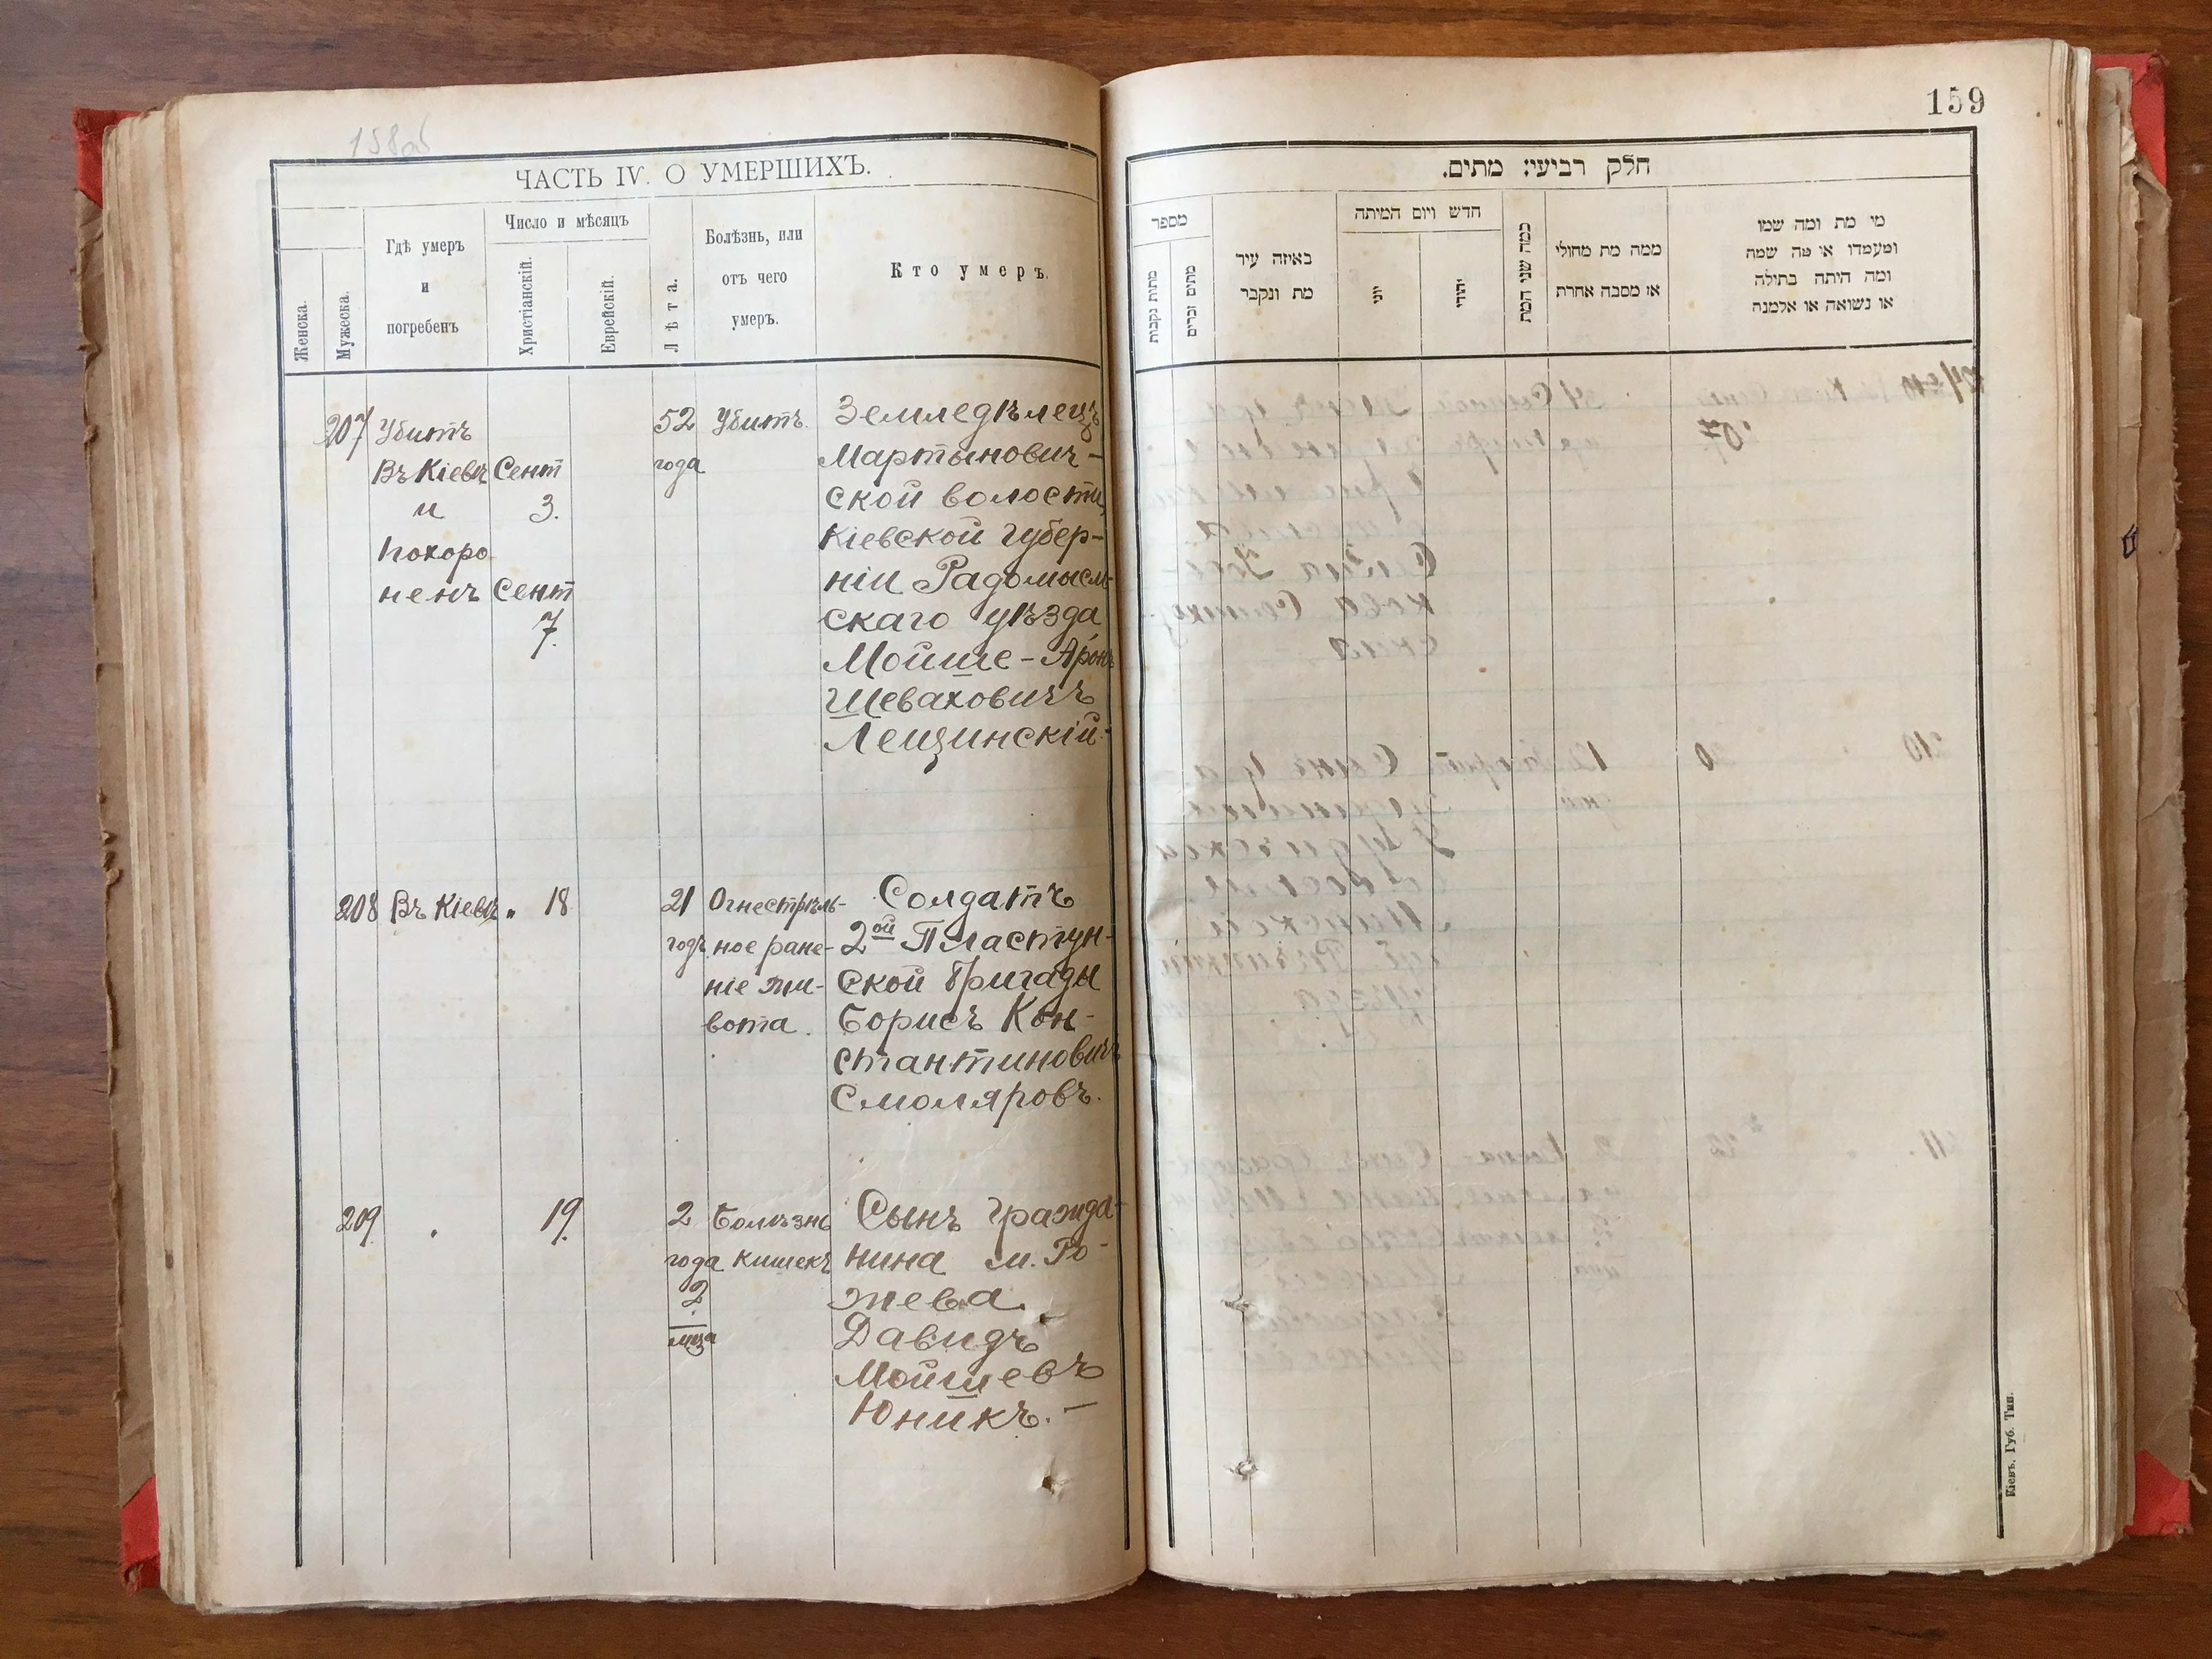 158об
ЧАСТЬ IV. О УМЕРШИХЪ.
Женска.
Мужеска.
Гдѣ умеръ
и
погребенъ
Число и мѣсяцъ
Христіанскій.
Еврейскій.
Лѣта.
Болѣзнь, или
отъ чего
умеръ.
Кто умеръ.
207
Убитъ
Въ Кіевѣ
и
похоро
ненъ
Сент
3.
Сент
7.
52
года
Убитъ.
Земледѣлецъ
Мартынович-
ской волости,
Кіевской губер-
ніи Радомысль-
скаго уѣзда
Мойше-Аронъ
Шеваховичъ
Лещинскій.-
208
Въ Кіевѣ
" 18
21
годъ
Огнестрѣль-
ное ране-
ніе жи-
вота.
Солдатъ
2ой Пластун-
ской бригады
Борисъ Кон-
стантиновичъ
Смоляровъ.
209
"
19.
2
года
2
мца
Болѣзнь
кишекъ
Сынъ гражда-
нина м. Ро-
жева
Давидъ
Мойшевъ
Юникъ.-
159
חלק רביעי: מתים.
מספר
מתות נקבות
מתים זכרים
באיזה עיר
מת ונקבר
חדש ויום המיתה
יוני
יהודי
כמה שני המת
ממה מת מחולי
או מסבה אחרת
מי מת ומה שמו
ומעמדו או מה שמה
ומה היתה בתולה
או נשואה או אלמנה
Кіевъ, Губ. Тип.